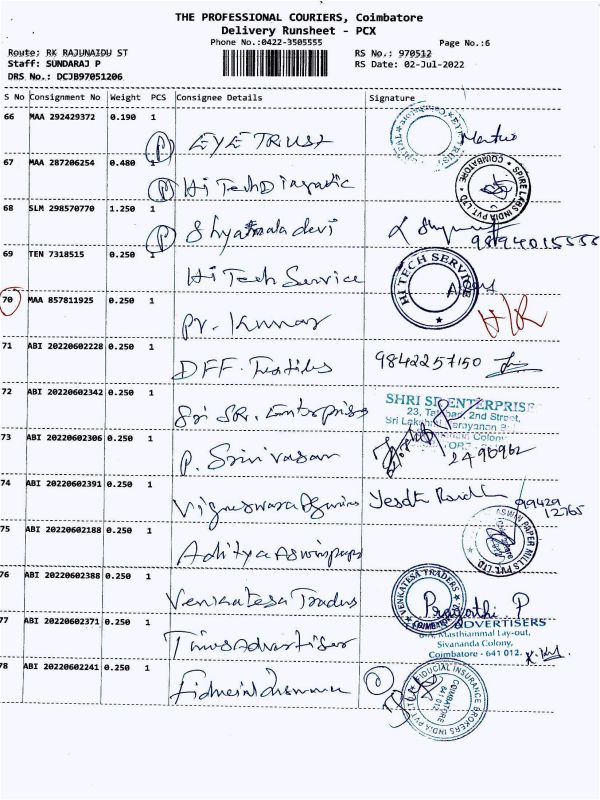 THE PROFESSIONAL COURIERS, Coimbatore
Delivery Runsheet - PCX
Phone No.:0422-3505555
Page No.:6
Route: RK RAJUNAIDU ST
RS No.: 970512
Staff: SUNDARAJ P
RS Date: 02-Jul-2022
DRS No.: DCJB97051206
S No Consignment No Weight PCS Consignee Details Signature
66 MAA 292429372 0.190 1
P EYE TRUST
67 MAA 287206254 0.480 1
P Hi Tech Diagnatic
COIMBATORE * SPIRE LABS INDIA PVT LTD
68 SLM 298570770 1.250 1
P Shyamala devi
9894015555
69 TEN 7318515 0.250 1
Hi Tech Service
HI TECH SERVICE
70 MAA 857811925 0.250 1
Pr. Kumar
71 ABI 20220602228 0.250 1
DFF. Textiles 9842257150
72 ABI 20220602342 0.250 1
Sri SR. Enterprises
SHRI SRI ENTERPRISE
2nd Street,
73 ABI 20220602306 0.250 1
P. Srinivasan
2490962
74 ABI 20220602391 0.250 1
99429
12765
75 ABI 20220602188 0.250 1
Aditya Aswinpaper
ASWIN PAPER MILLS PVT. LTD
76 ABI 20220602388 0.250 1
Venkatesa Traders
VENKATESA TRADERS
COIMBATORE
P
77 ABI 20220602371 0.250 1
Times Advertiser
ADVERTISERS
Masthiammal Lay-out,
Sivananda Colony,
Coimbatore - 641 012.
78 ABI 20220602241 0.250 1
FIDUCIAL INSURANCE BROKERS INDIA PVT LTD
COIMBATORE
641 012